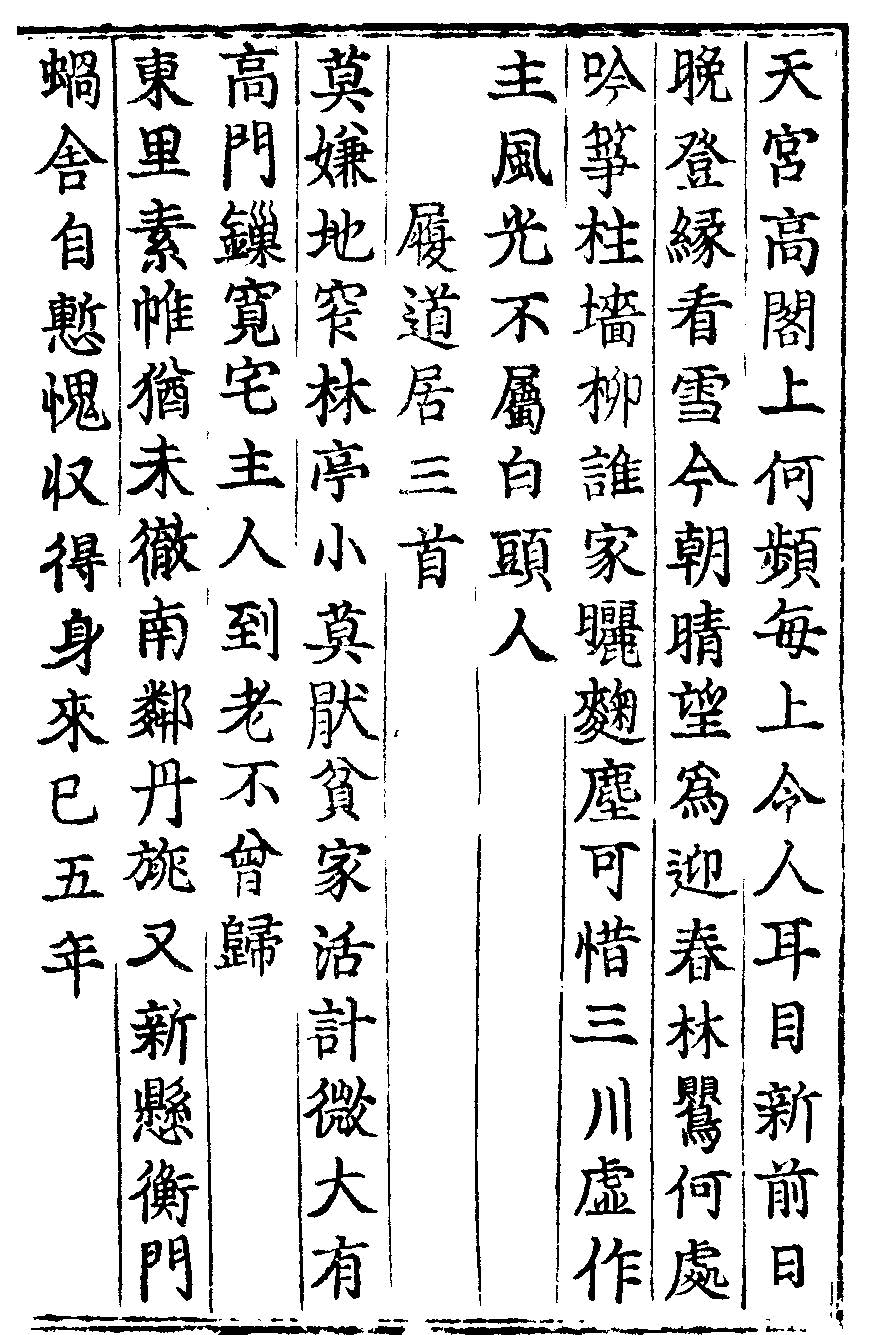 天宮高閣上何頻每上令人耳目新前日
晚登緣看雪今朝晴望爲迎春林鸎何處
吟箏柱墻柳誰家曬麴塵可惜三川虛作
主風光不屬白頭人
履道居三首
莫嫌地窄林亭小莫猒貧家活計微大有
高門鏁寬宅主人到老不曾歸
東里素帷猶未徹南鄰丹旐又新懸衡門
蝸舍自慙愧収得身來已五年